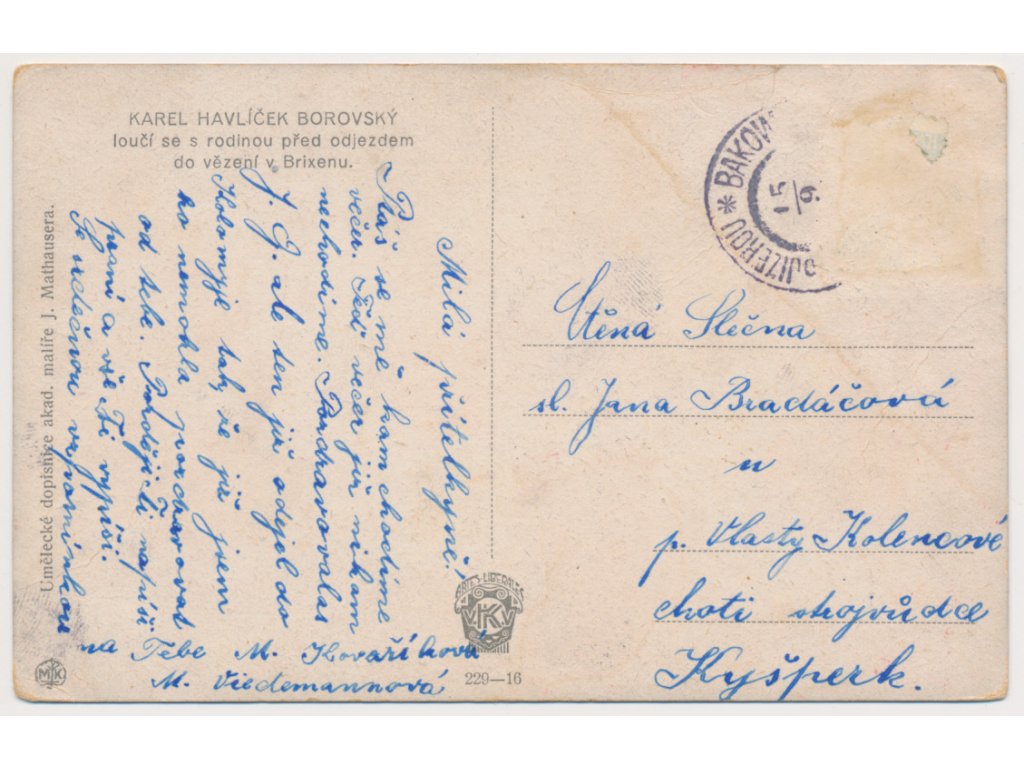 KAREL HAVLÍČEK BOROVSKÝ
loučí se s rodinou před odjezdem
do vězení v Brixenu.
Umělecké dopisnice akad. malíře J. Mathausera.
Milá přítelkyně!
Ptáš se mě kam chodíme
večer. Teď večer již nikam
nechodíme. Pozdravovalas
J. J. ale ten již odejel do
Kolomyje tak, že již jsem
ho nemohla pozdravovat
od tebe. Později Ti napíši
psaní a vše Ti vypíši.
Se srdečnou vzpomínkou
na Tebe M. Kovaříková
M. Viedemannová
ARTES LIBERALES
V.K.K.V.
229—16
MK
BAKOW
JIZEROU *
15
9
Ctěná Slečna
sl. Jana Bradáčová
u
p. Vlasty Kolencové
choti strojvůdce
Kyšperk.